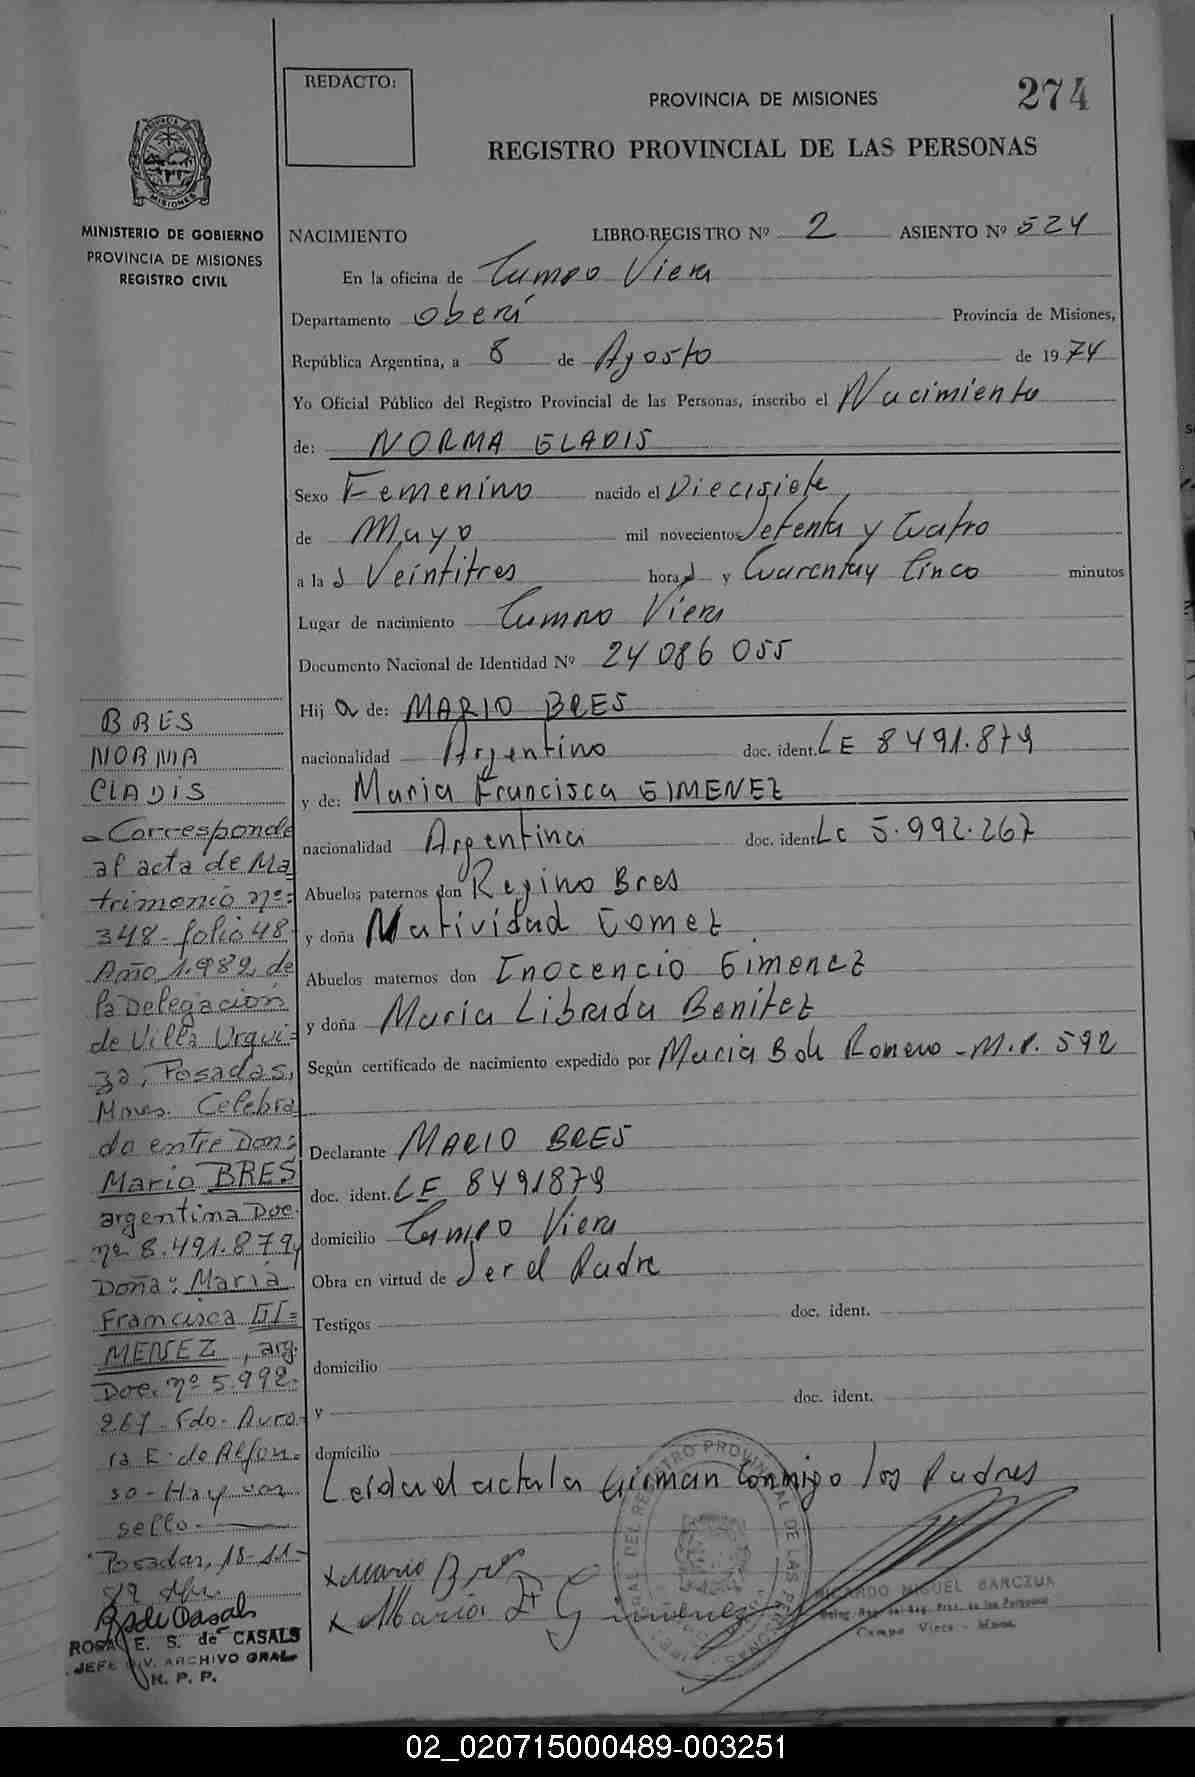 REDACTO:
PROVINCIA DE MISIONES
274
REGISTRO PROVINCIAL DE LAS PERSONAS
PROVINCIA DE
MISIONES
MINISTERIO DE GOBIERNO
PROVINCIA DE MISIONES
REGISTRO CIVIL
NACIMIENTO LIBRO-REGISTRO Nº 2 ASIENTO Nº 524
En la oficina de Campo Viera
Departamento Oberá Provincia de Misiones,
República Argentina, a 8 de Agosto de 1974
Yo Oficial Público del Registro Provincial de las Personas, inscribo el Nacimiento
de: NORMA GLADIS
Sexo Femenino nacido el Diecisiete
de Mayo mil novecientos Setenta y Cuatro
a las Veintitres horas y Cuarenta y Cinco minutos
Lugar de nacimiento Campo Viera
Documento Nacional de Identidad Nº 24 086 055
Hija de: MARIO BRES
nacionalidad Argentino doc. ident. LE 8491.879
y de: Maria Francisca GIMENEZ
nacionalidad Argentina doc. ident. LC 5.992.267
Abuelos paternos don Regino Bres
y doña Natividad Gomez
Abuelos maternos don Inocencio Gimenez
y doña Maria Librada Benitez
Según certificado de nacimiento expedido por Maria B de Romero - M.P. 592
Declarante MARIO BRES
doc. ident. LE 8491879
domicilio Campo Viera
Obra en virtud de Ser el Padre
Testigos doc. ident.
domicilio
y doc. ident.
domicilio
Leida el acta la firman conmigo los Padres
x Mario Bres
x Maria F Gimenez
RICARDO MIGUEL BARCZUK
Campo Viera - Mnes.
BRES
NORMA
GLADIS
- Corresponde
al acta de Ma
trimonio nº=
348- folio 48-
Año 1.982, de
la Delegación
de Villa Urqui=
za, Posadas,
Mnes. Celebra
do entre Don:
Mario BRES
argentina Doc.
nº 8.491.879 y
Doña: Maria
Francisca GI=
MENEZ, arg.
Doc. nº 5.992.
267. Fdo. Auro
ra E. de Alfon=
so - Hay un
sello.
Posadas, 18-11-
R S de Casals
ROSA E. S. de CASALS
JEFE DIV. ARCHIVO GRAL.
R. P. P.
02_020715000489-003251